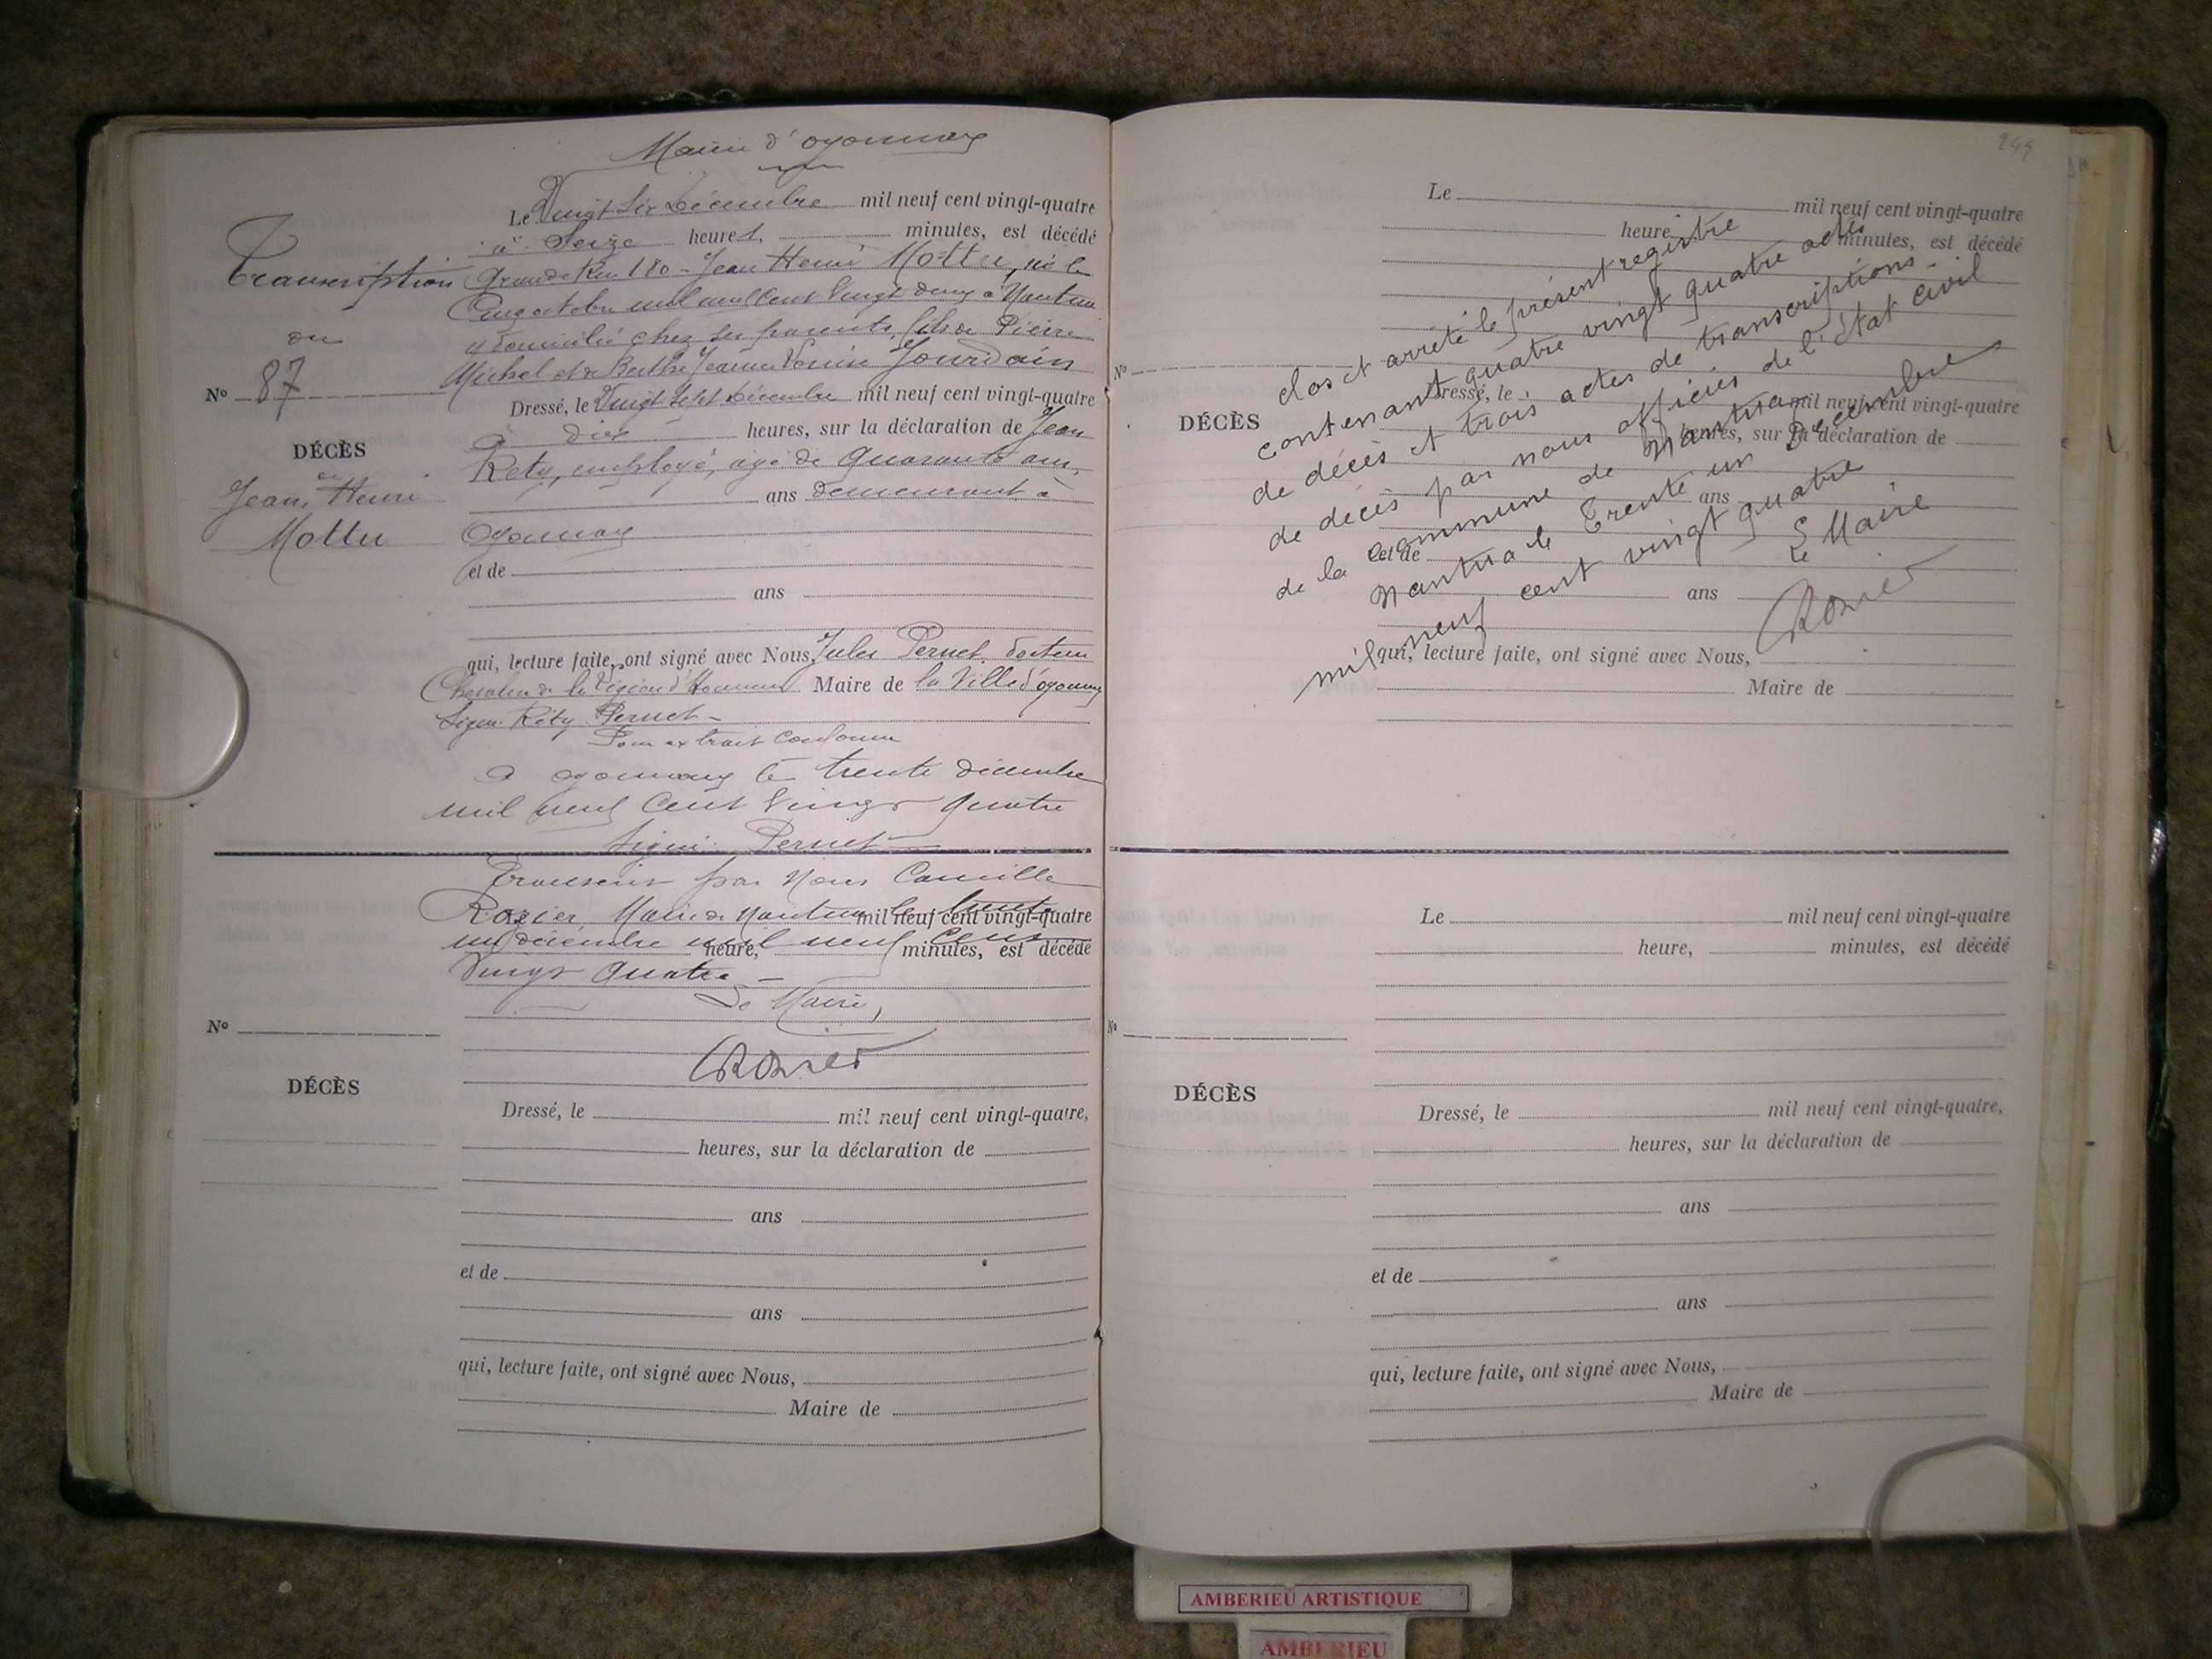 Mairie d'oyonnax
Le Vingt Six Décembre mil neuf cent vingt-quatre
à Seize heures, minutes, est décédé
Grande Rue 180 - Jean Henri Mottu, né le
Cinq octobre mil neuf cent Vingt deux à Nantua
domicilié chez ses parents, fils de Pierre
Michel et de Berthe Jeanne Jourdain
Transcription
N° 87
DÉCÈS
de
Jean, Henri
Mottu
Dressé, le Vingt Sept Décembre mil neuf cent vingt-quatre
à dix heures, sur la déclaration de Jean
Rety, employé, âgé de quarante ans,
ans demeurant à
Oyonnax
et de
ans
qui, lecture faite, ont signé avec Nous, Jules Pernet, docteur
Chevalier de la Légion d'Honneur Maire de la Ville d'oyonnax
Signé Réty Pernet -
Pour extrait conforme
a oyonnax le trente décembre
mil neuf Cent Vingt Quatre
Signé: Pernet
Transcrit par Nous Camille
Rozier Maire de Nantua le trente mil neuf cent vingt-quatre
un décembre mil neuf Cent heure, minutes, est décédé
Vingt Quatre -
Le Maire,
CRozier
N°
DÉCÈS
Dressé, le mil neuf cent vingt-quatre,
heures, sur la déclaration de
ans
et de
ans
qui, lecture faite, ont signé avec Nous,
Maire de
Le mil neuf cent vingt-quatre
heure minutes, est décédé
N°
DÉCÈS
Dressé, le mil neuf cent vingt-quatre
heures, sur la déclaration de
ans
et de
ans
qui, lecture faite, ont signé avec Nous,
Maire de
clos et arrêté le présent registre
contenant quatre vingt quatre actes
de décès et trois actes de transcriptions
de décès par nous officier de l'état civil
de la commune de Nantua
Nantua le Trente un Décembre
mil neuf cent vingt quatre
Le Maire
CRozier
Le mil neuf cent vingt-quatre
heure, minutes, est décédé
N°
DÉCÈS
Dressé, le mil neuf cent vingt-quatre,
heures, sur la déclaration de
ans
et de
ans
qui, lecture faite, ont signé avec Nous,
Maire de
AMBERIEU ARTISTIQUE
AMBERIEU